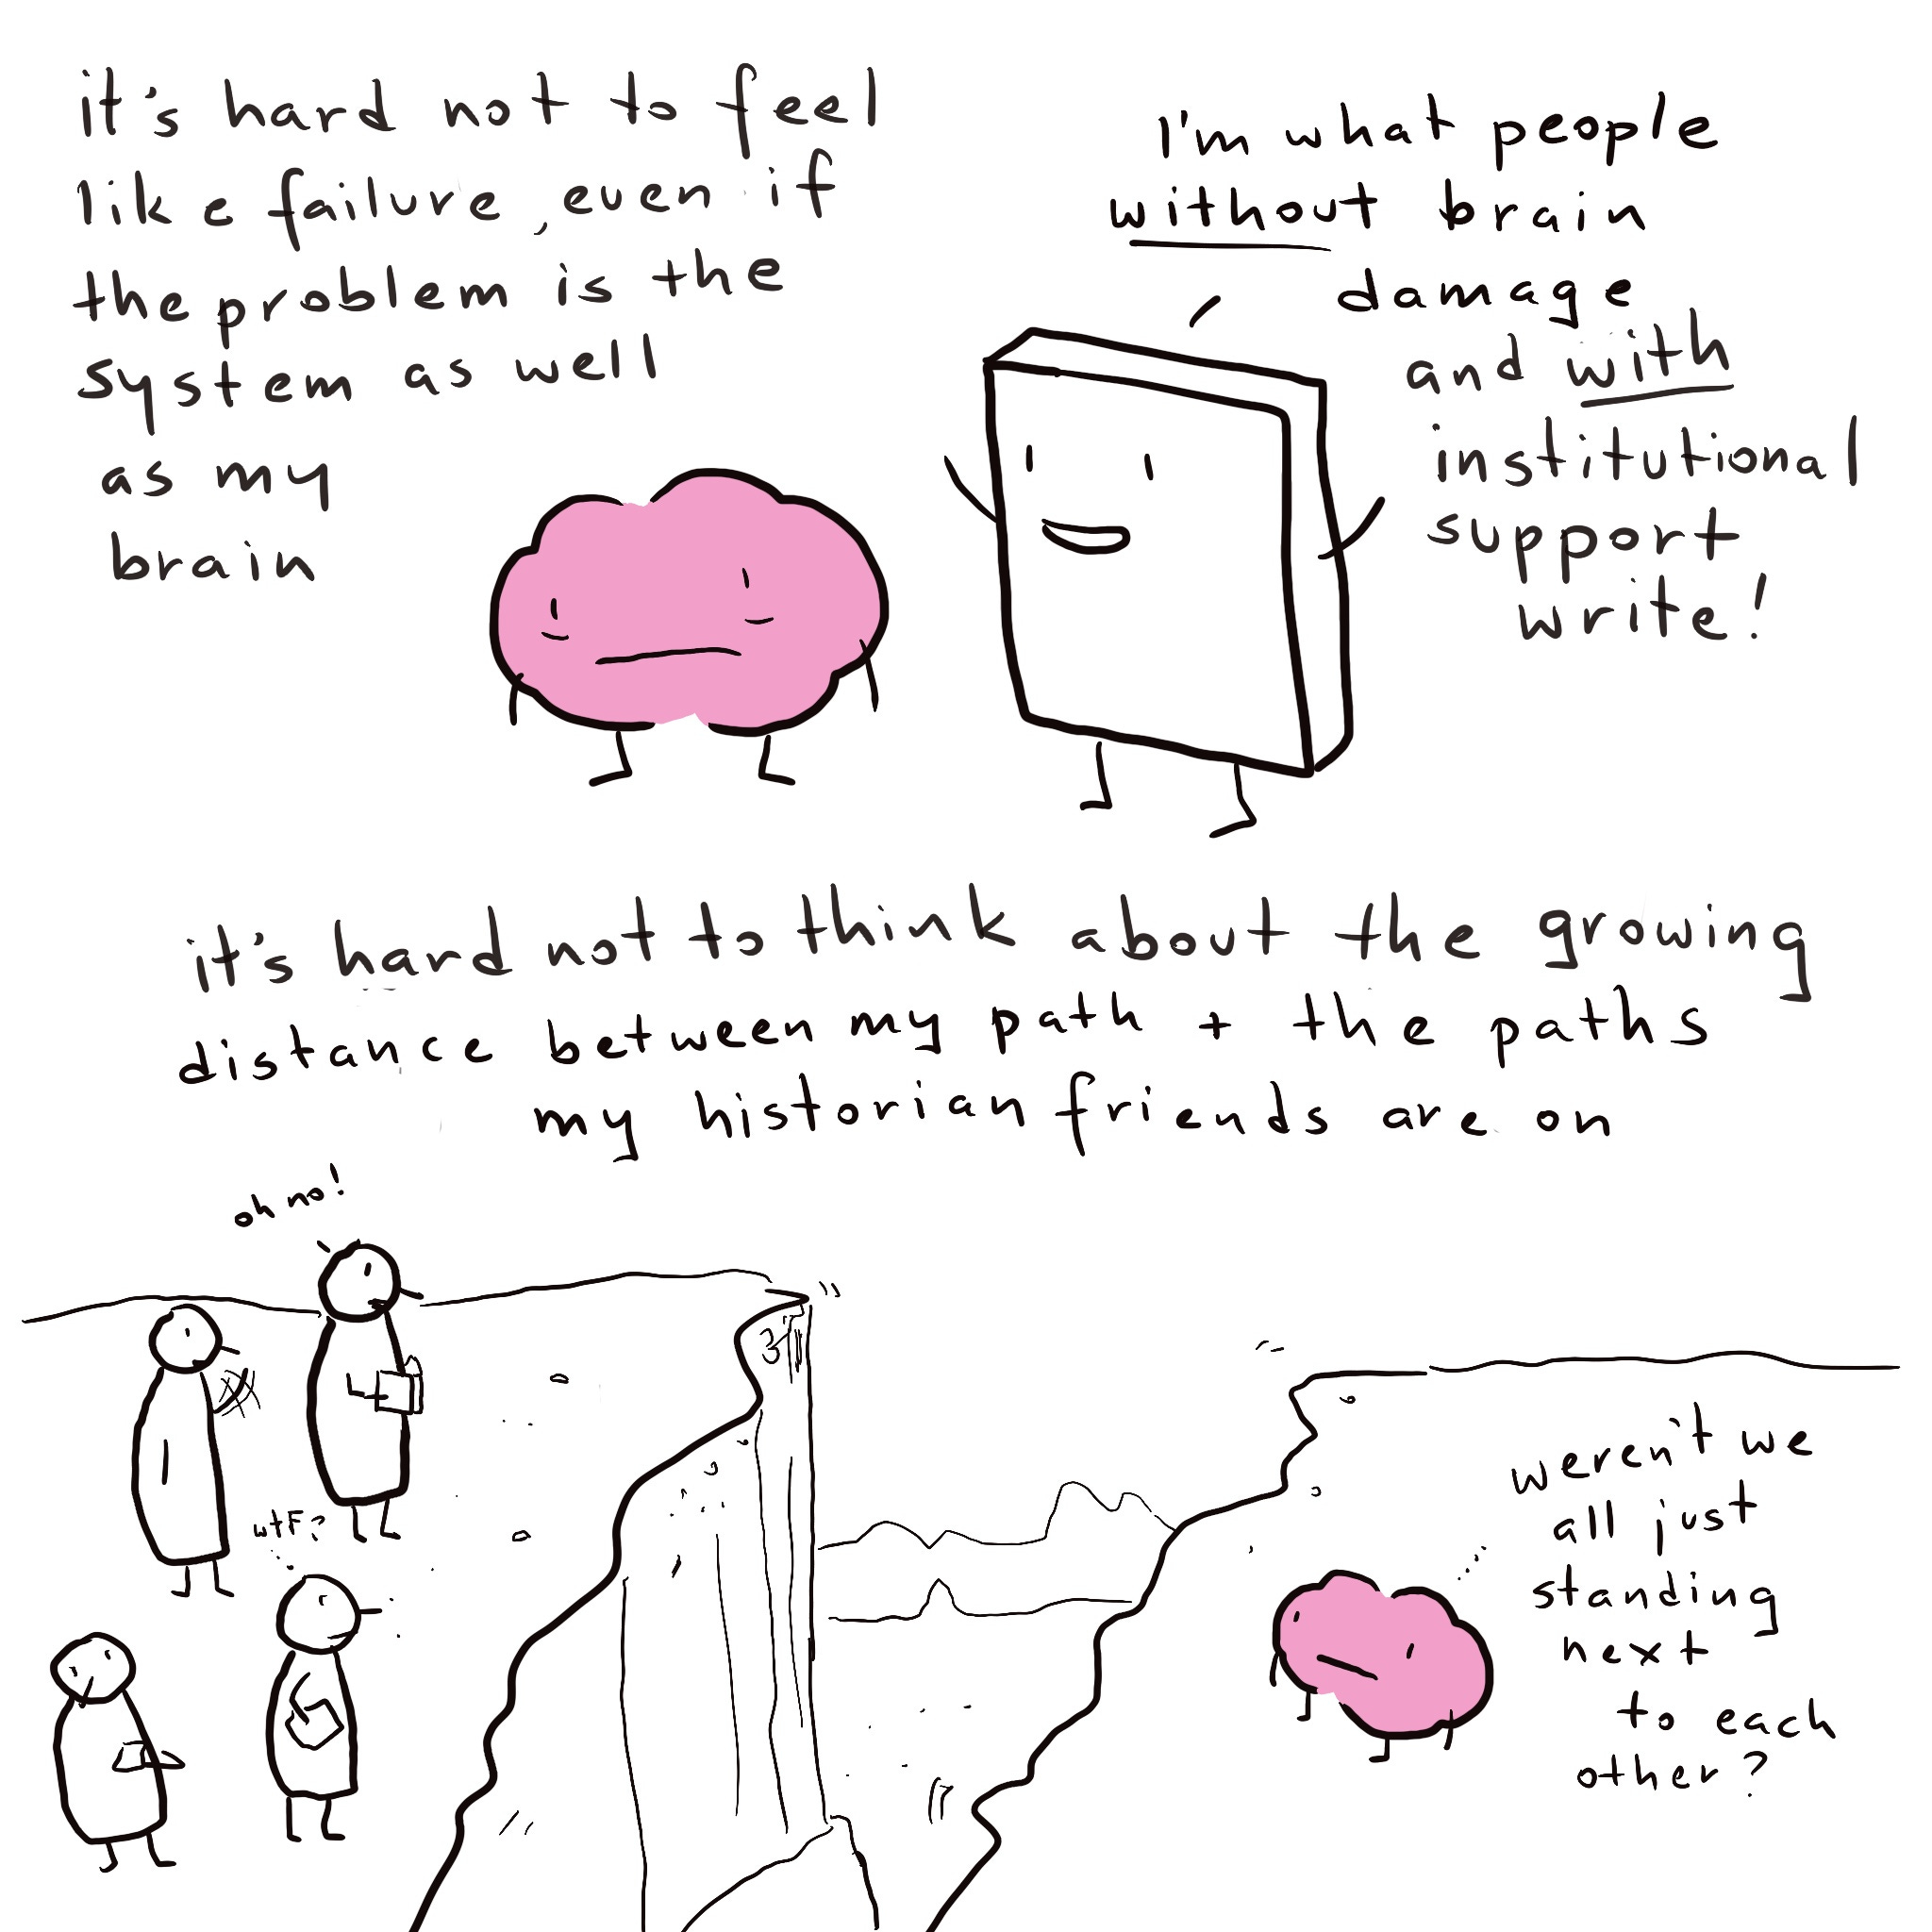 it's hard not to feel
like failure, even if
the problem is the
system as well
as my
brain
I'm what people
without brain
damage
and with
institutional
support
write!
it's hard not to think about the growing
distance between my path + the paths
my historian friends are on
oh no!
wtf?
weren't we
all just
standing
next
to each
other?